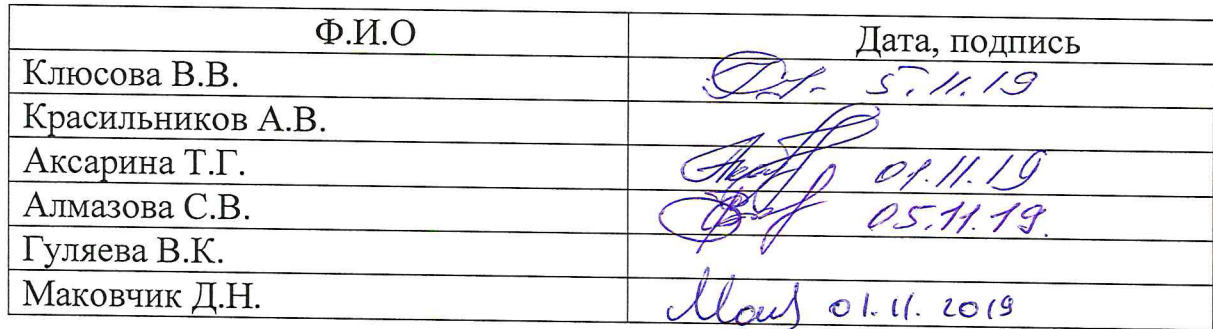 Ф.И.О Дата, подпись
Клюсова В.В. 5.11.19
Красильников А.В.
Аксарина Т.Г. 01.11.19
Алмазова С.В. 05.11.19.
Гуляева В.К.
Маковчик Д.Н. 01.11.2019